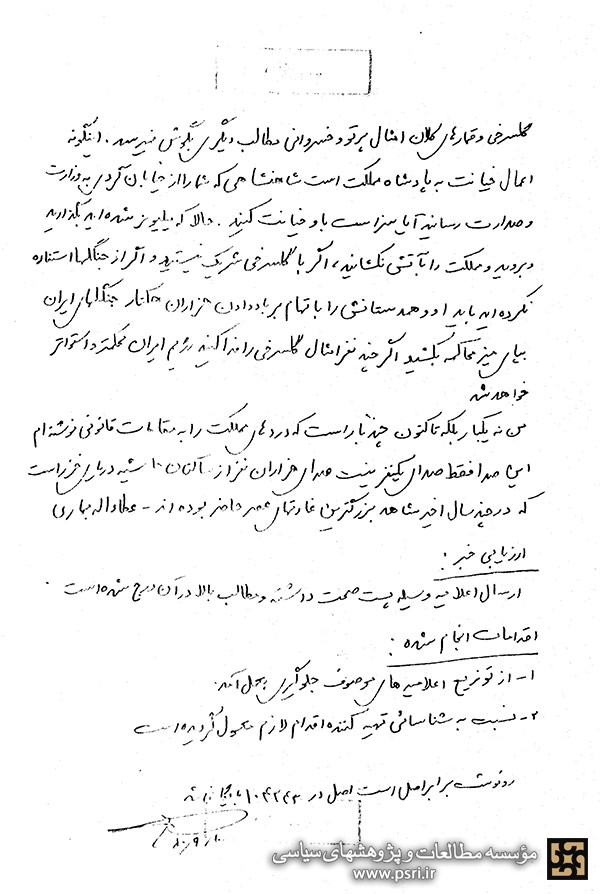 گلسرخی و قمارهای کلان امثال پرتو و خسروانی مطالب دیگری بگوش نمیرسد. اینگونه
اعمال خیانت به پادشاه مملکت است شاهنشاهی که شما را از خیابان گردی به وزارت
و صدارت رسانید آیا سزاست باو خیانت کنید. حالا که میلیونر شده اید بگذارید
و بروید و مملکت را بآتش نکشانید، اگر با گلسرخی شریک نیستید و اگر از جنگلها استفاده
نکرده اید باید او و همدستانش را با تهام بر باد دادن هزاران هکتار جنگلهای ایران
بپای میز محاکمه بکشید اگر چند نفر امثال گلسرخی را فدا کنید رژیم ایران محکمتر و استوارتر
خواهد شد
من نه یکبار بلکه تاکنون چند بار است که دردهای مملکت را به مقامات قانونی نوشته ام
این صدا فقط صدای یکنفر نیست صدای هزاران نفر از ساکنان حاشیه دریای خزر است
که در چند سال اخیر شاهد بزرگترین غارتهای عصر حاضر بوده اند -
ارزیابی خبر:
ارسال اعلامیه وسیله پست صحت داشته و مطالب بالا در آن درج شده است
اقدامات انجام شده:
۱- از توزیع اعلامیه های موصوف جلوگیری بعمل آمد.
۲- نسبت به شناسائی تهیه کننده اقدام لازم معمول گردیده است
رونوشت برابر اصل است اصل در ۱۰۴۲۴۳ بایگانی شد
مؤسسه مطالعات و پژوهشهای سیاسی
www.psri.ir